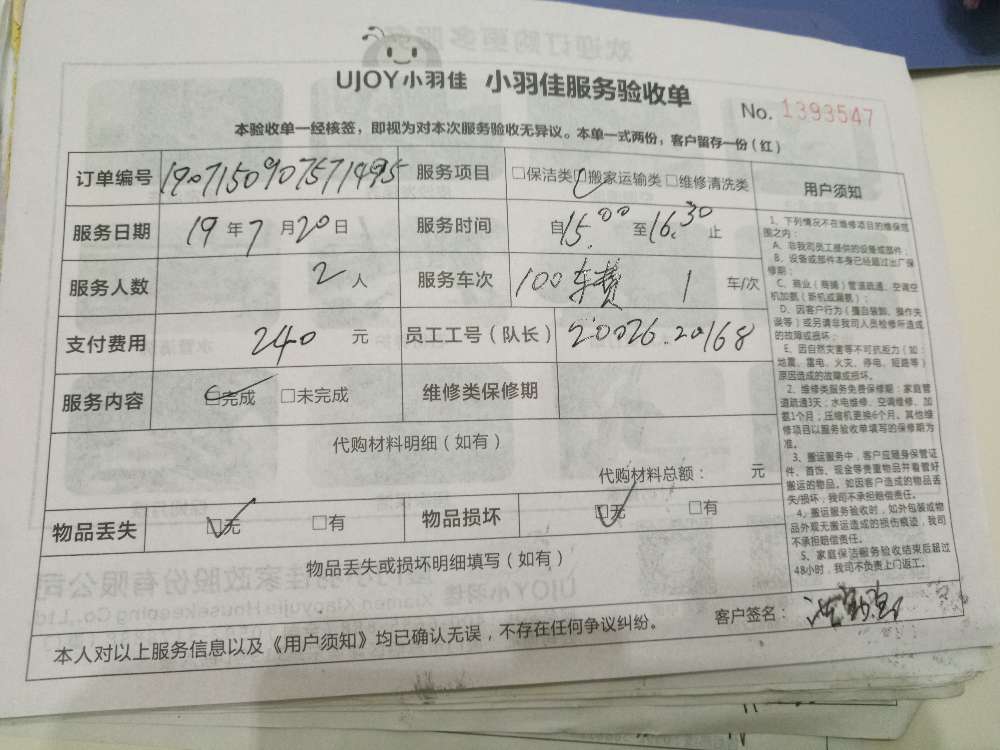 UJOY小羽佳 小羽佳服务验收单
No. 1393547
本验收单一经核签，即视为对本次服务验收无异议。本单一式两份，客户留存一份（红）
订单编号 190715090757149​5 服务项目 □保洁类 □搬家运输类 □维修清洗类
服务日期 19 年 7 月 20 日 服务时间 自 15:00 至 16:30 止
服务人数 2 人 服务车次 100车费 1 车/次
支付费用 240 元 员工工号（队长） 20026.20168
服务内容 □完成 □未完成 维修类保修期
代购材料明细（如有）
代购材料总额： 元
物品丢失 □无 □有 物品损坏 □无 □有
物品丢失或损坏明细填写（如有）
本人对以上服务信息以及《用户须知》均已确认无误，不存在任何争议纠纷。 客户签名：
用户须知
1、下列情况不在维修项目的维保范
围之内：
A、非我司员工提供的设备或部件；
B、设备或部件本身已经超过出厂保
修期；
C、商业（商铺）管道疏通、空调空
机加氨（新机或漏氨）；
D、因客户行为（擅自装卸、操作失
误等）或另请非我司人员检修所造成
的故障或损坏；
E、因自然灾害等不可抗拒力（如：
地震、雷电、火灾、停电、短路等）
原因造成的故障或损坏。
2、维修类服务免费保修期：家庭管
道疏通3天；水电维修、空调维修、加
氨1个月；压缩机更换6个月。其他维
修项目以服务验收单填写的保修期为
准。
3、搬运服务中，客户应随身保管证
件、首饰、现金等贵重物品并看管好
搬运的物品。如因客户造成的物品丢
失/损坏，我司不承担赔偿责任。
4、搬运服务验收时，如外包装或物
品外观无搬运造成的损伤痕迹，我司
不承担赔偿责任。
5、家庭保洁服务验收结束后超过
48小时，我司不负责上门返工。